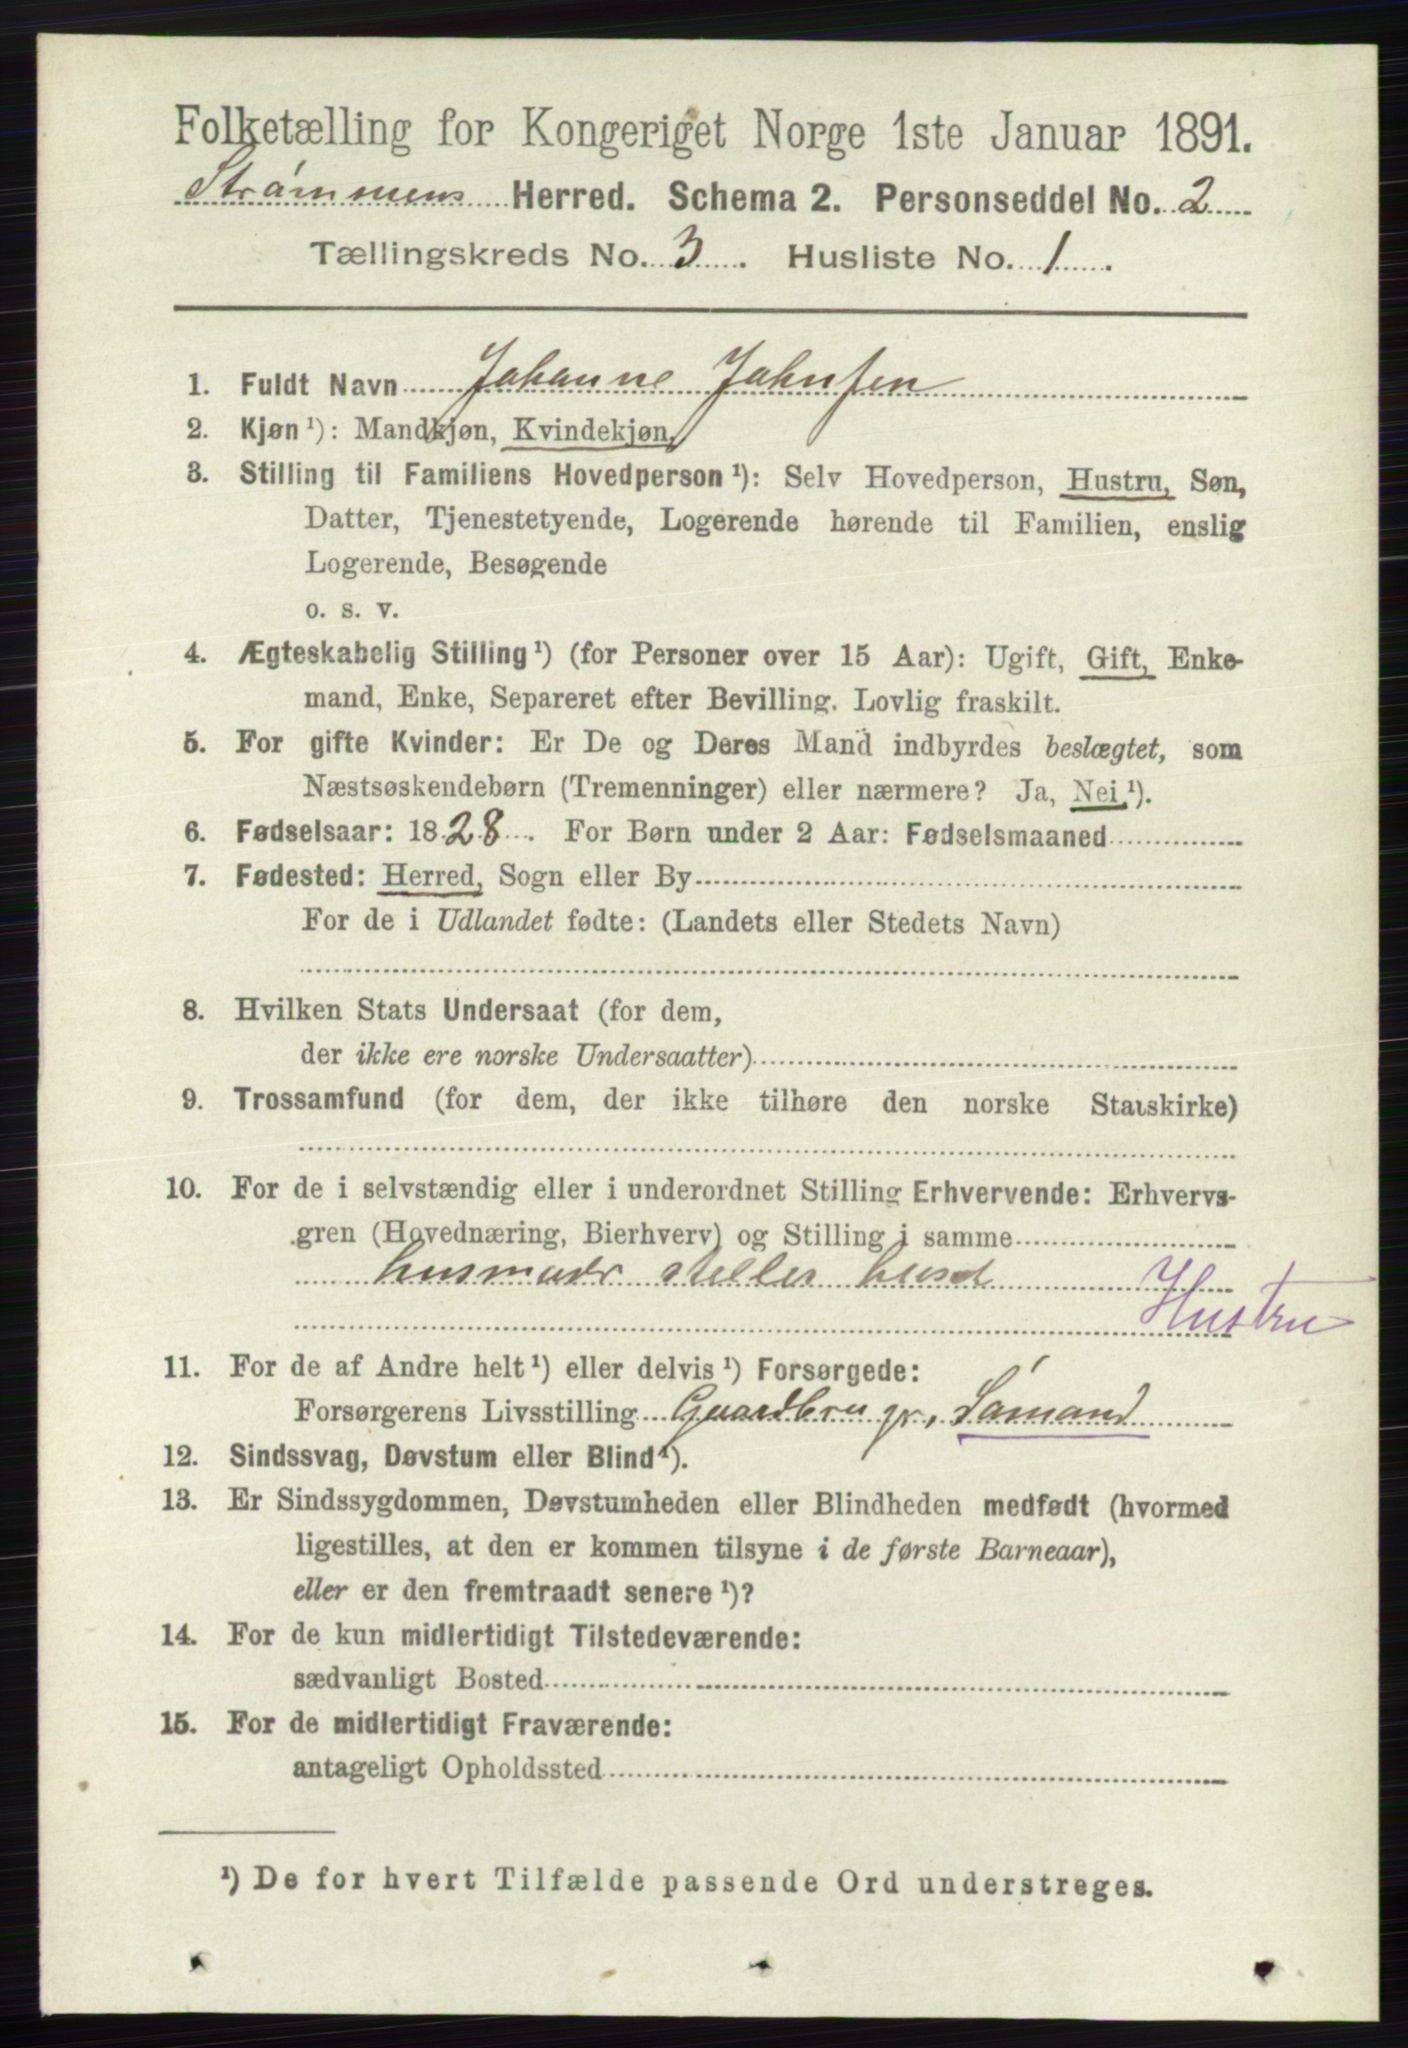 Folketælling for Kongeriget Norge 1ste Januar 1891.
Strømmens Herred. Schema 2. Personseddel No. 2
Tællingskreds No. 3. Husliste No. 1.
1. Fuldt Navn Johanne Johnsen
2. Kjøn ¹): Mandkjøn, Kvindekjøn,
3. Stilling til Familiens Hovedperson ¹): Selv Hovedperson, Hustru, Søn,
Datter, Tjenestetyende, Logerende hørende til Familien, enslig
Logerende, Besøgende
o. s. v.
4. Ægteskabelig Stilling ¹) (for Personer over 15 Aar): Ugift, Gift, Enke-
mand, Enke, Separeret efter Bevilling. Lovlig fraskilt.
5. For gifte Kvinder: Er De og Deres Mand indbyrdes beslægtet, som
Næstsøskendebørn (Tremenninger) eller nærmere? Ja, Nei ¹).
6. Fødselsaar: 1828. For Børn under 2 Aar: Fødselsmaaned
7. Fødested: Herred, Sogn eller By
For de i Udlandet fødte: (Landets eller Stedets Navn)
8. Hvilken Stats Undersaat (for dem,
der ikke ere norske Undersaatter)
9. Trossamfund (for dem, der ikke tilhøre den norske Statskirke)
10. For de i selvstændig eller i underordnet Stilling Erhvervende: Erhvervs-
gren (Hovednæring, Bierhverv) og Stilling i samme
husmodr steller huset
Hustru
11. For de af Andre helt ¹) eller delvis ¹) Forsørgede:
Forsørgerens Livsstilling Gaardbru gr, Sømand
12. Sindssvag, Døvstum eller Blind ¹).
13. Er Sindssygdommen, Døvstumheden eller Blindheden medfødt (hvormed
ligestilles, at den er kommen tilsyne i de første Barneaar),
eller er den fremtraadt senere ¹)?
14. For de kun midlertidigt Tilstedeværende:
sædvanligt Bosted
15. For de midlertidigt Fraværende:
antageligt Opholdssted
¹) De for hvert Tilfælde passende Ord understreges.